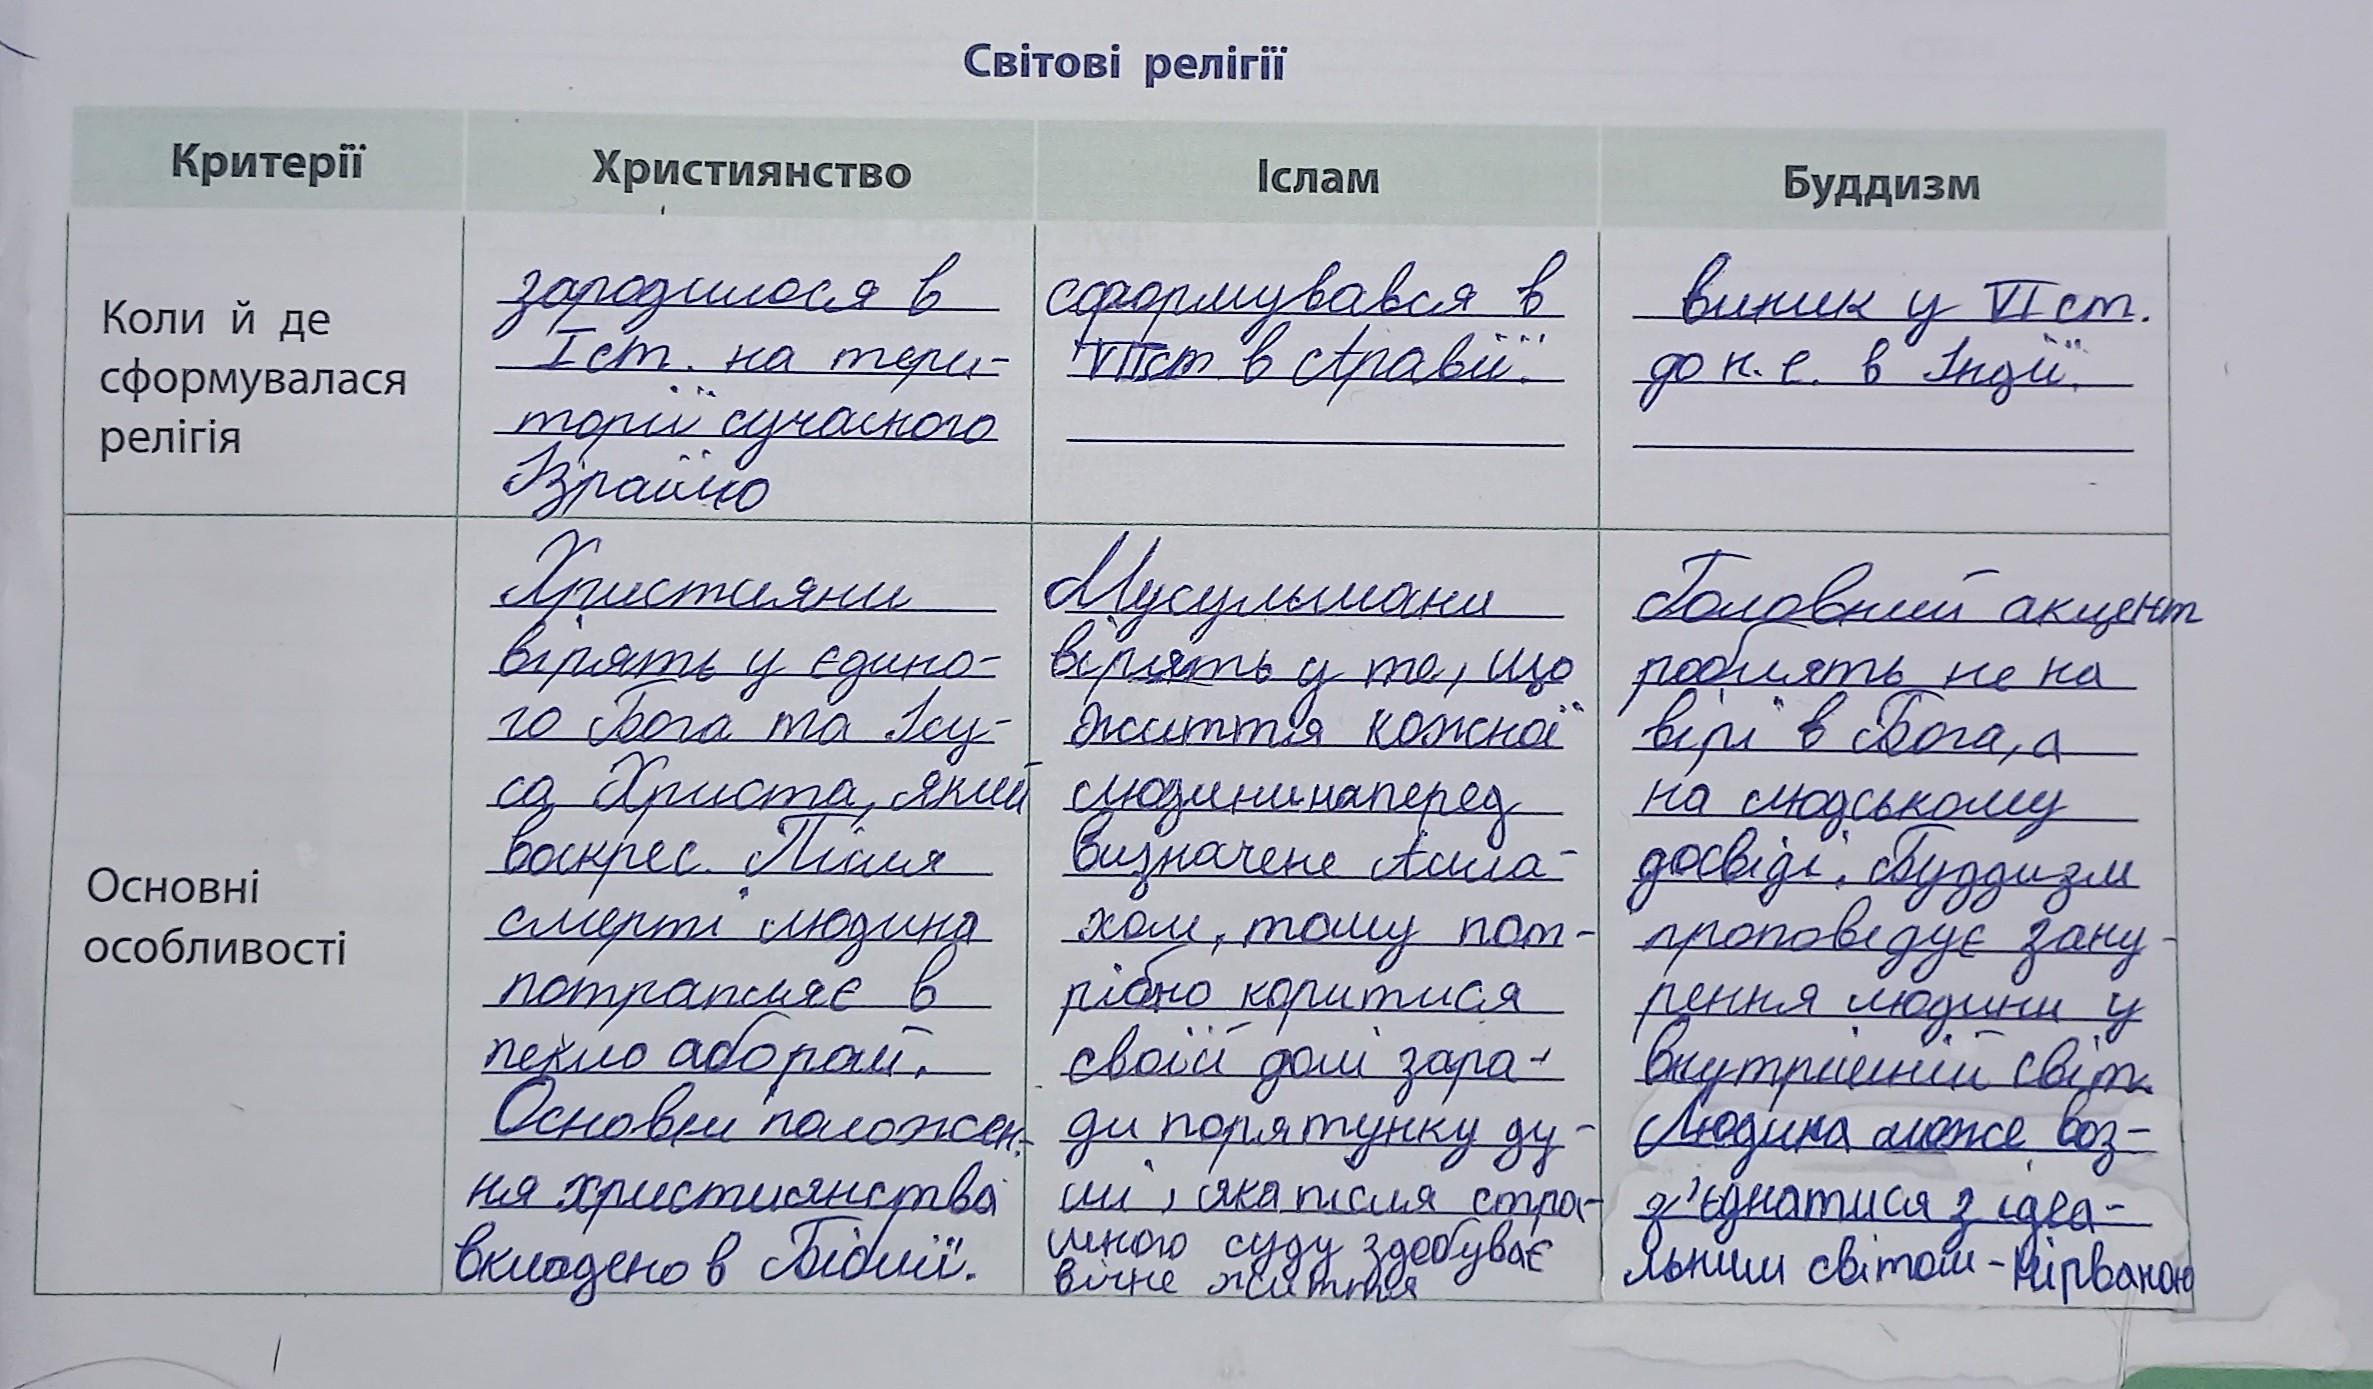 Світові релігії
Критерії
Християнство
Іслам
Буддизм
Коли й де
сформувалася
релігія
зародилося в
І ст. на тери-
торії сучасного
Ізраїлю
сформувався в
VII ст. в Аравії.
виник у VI ст.
до н. е. в Індії.
Основні
особливості
Християни
вірять у єдино-
го Бога та Ісу-
са Христа, який
воскрес. Після
смерті людина
потрапляє в
пекло або рай.
Основні положен-
ня християнства
вкладено в Біблії.
Мусульмани
вірять у те, що
життя кожної
людини наперед
визначене Алла-
хом, тому пот-
рібно коритися
своїй долі зара-
ди порятунку ду-
ші, яка після стра-
шного суду здобуває
вічне життя
Головний акцент
роблять не на
вірі в Бога, а
на людському
досвіді. Буддизм
проповідує зану-
рення людини у
внутрішній світ.
Людина може воз-
з'єднатися з ідеа-
льним світом - нірваною